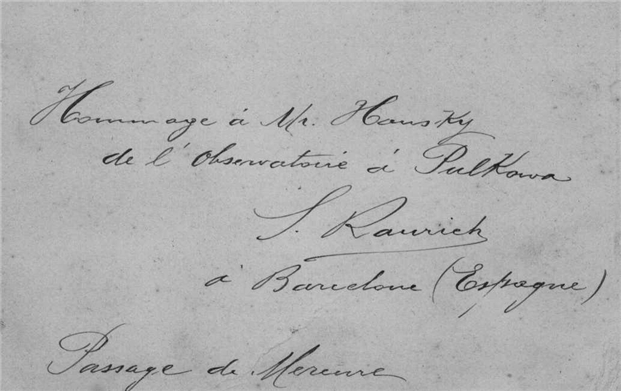 Hommage à Mr. Hansky
de l'Observatoire à Pulkowa
S. Raurich
à Barcelone (Espagne)
Passage de Mercure